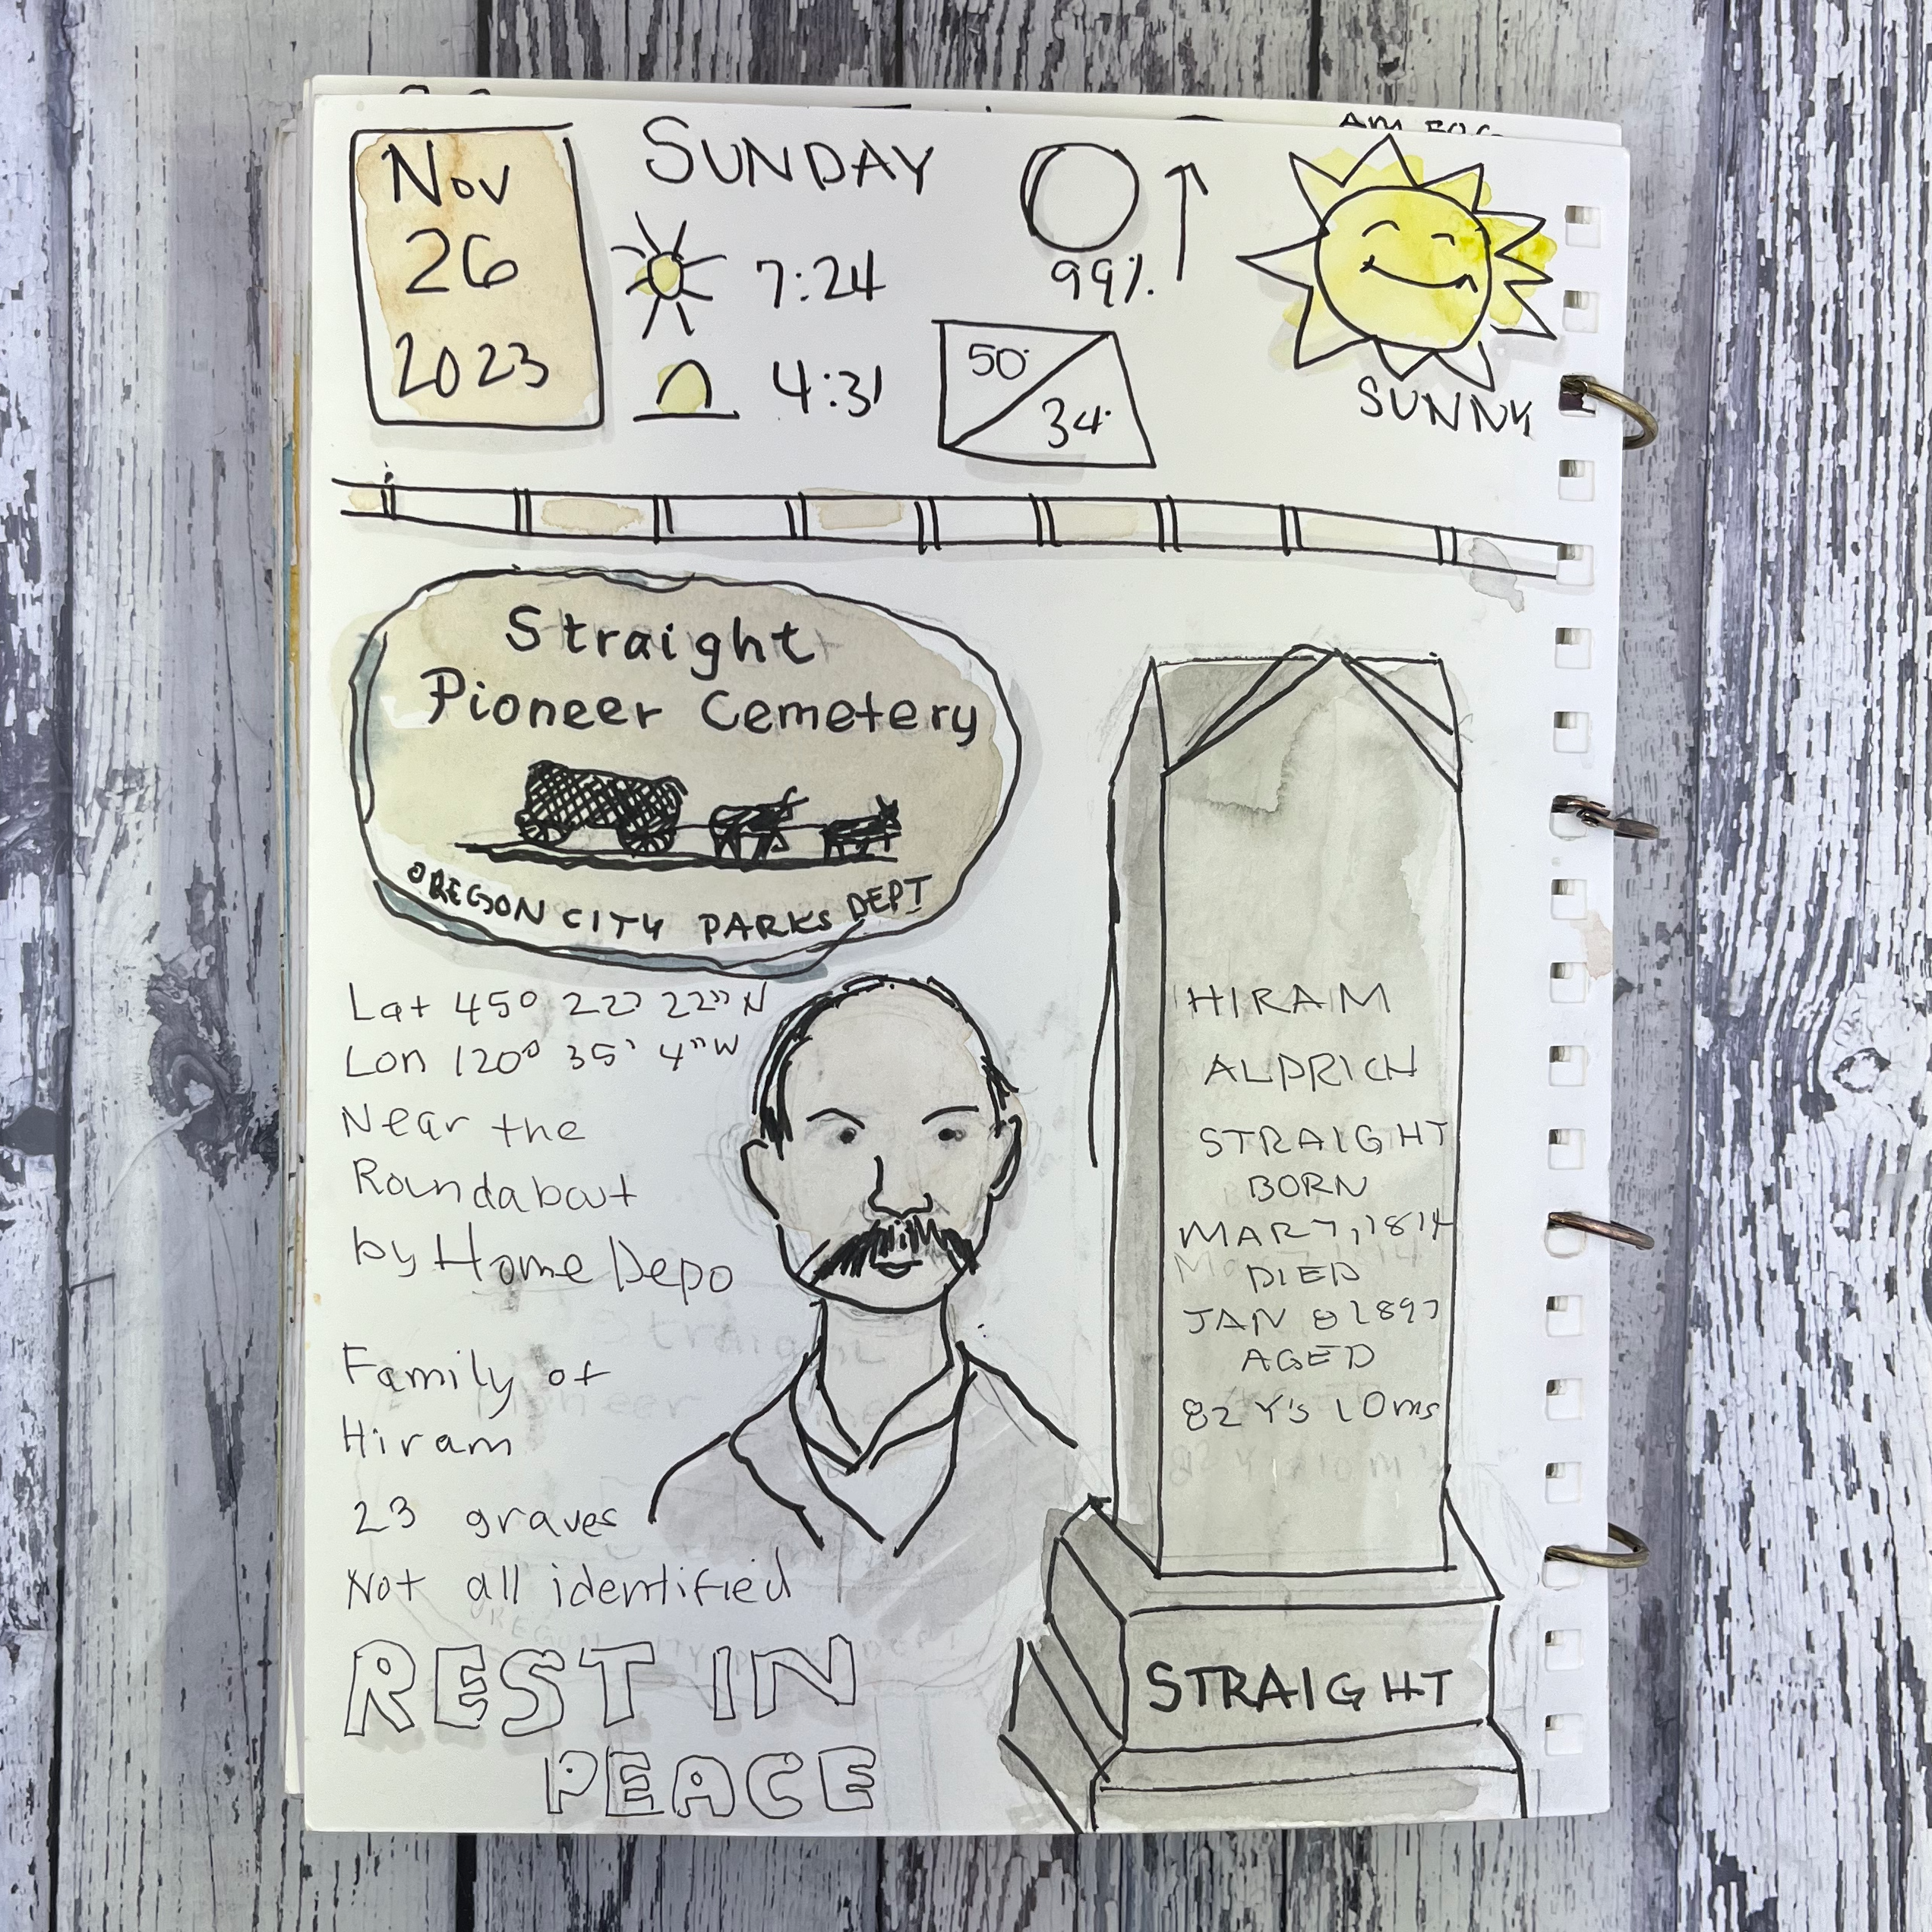 Nov
26
2023
SUNDAY
7:24
4:31
99%
50°
34°
SUNNY
Straight
Pioneer Cemetery
OREGON CITY PARKS DEPT
Lat 45° 22' 22" N
Lon 120° 35' 4" W
Near the
Roundabout
by Home Depo
Family of
Hiram
23 graves
Not all identified
REST IN
PEACE
HIRAM
ALDRICH
STRAIGHT
BORN
MAR 7, 1814
DIED
JAN 8 1897
AGED
82 Y's 10ms
STRAIGHT